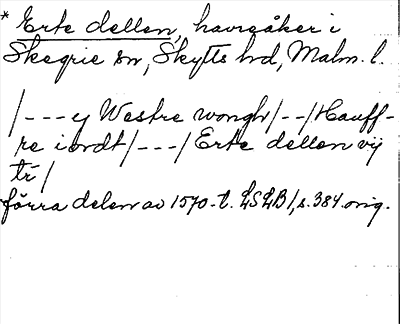 * Erte dellen, havreåker i
Skegrie sn, Skytts hd, Malm. l.
/---y Westre wongh/--/Hauff-
re iordt/---/Erte dellen vij
trí/
förra delen av 1570-t. LSLB1, s. 384. orig.